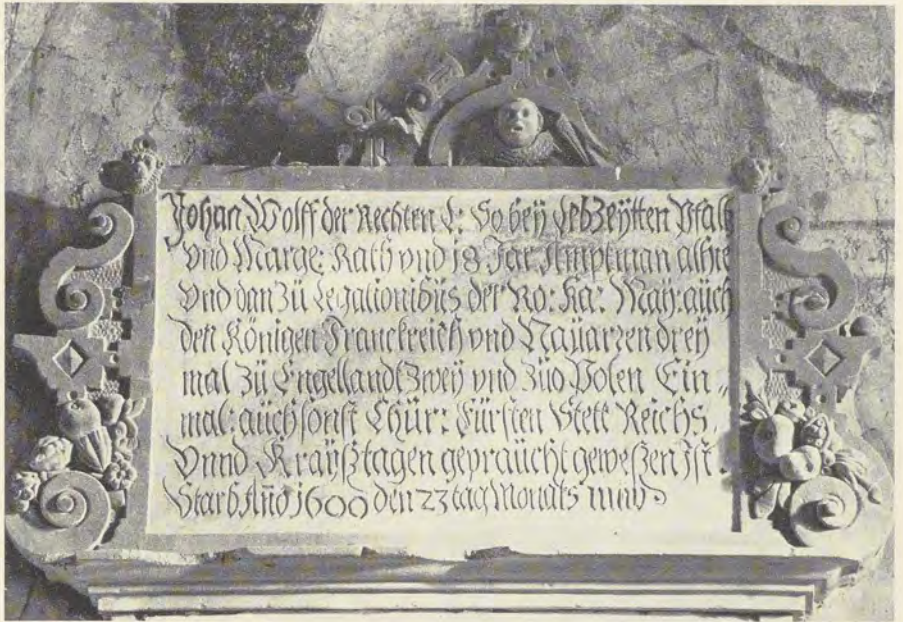 Johan Wolff der Rechten L: So beÿ Lebzeÿtten Pfalz
vnd Marge: Rath vnd 18 Jar Amptman alhie
vnd dan zü Legationibüs der Ro: Ka: Maÿ: aüch
den Königen Franckreich vnd Naüarren dreÿ
mal zü Engellandt Zweÿ vnd züo Polen Ein„
mal: aüch sonst Chür: Fürsten Stett Reichs
Vnnd Kraÿßtagen gepraücht geweßen Ist.
Starb Año 1600 den 23 tag Monats maÿ